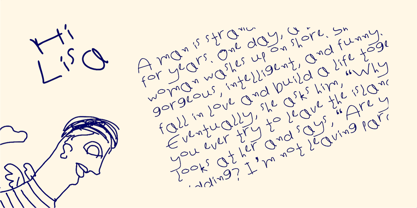 Hi
Lisa
A man is
for years. One day, a
woman washes up on shore.
gorgeous, intelligent, and funny.
fall in love and build a life
Eventually, she asks him, "Why
you ever try to leave the
looks at her and says, "Are
I'm not leaving